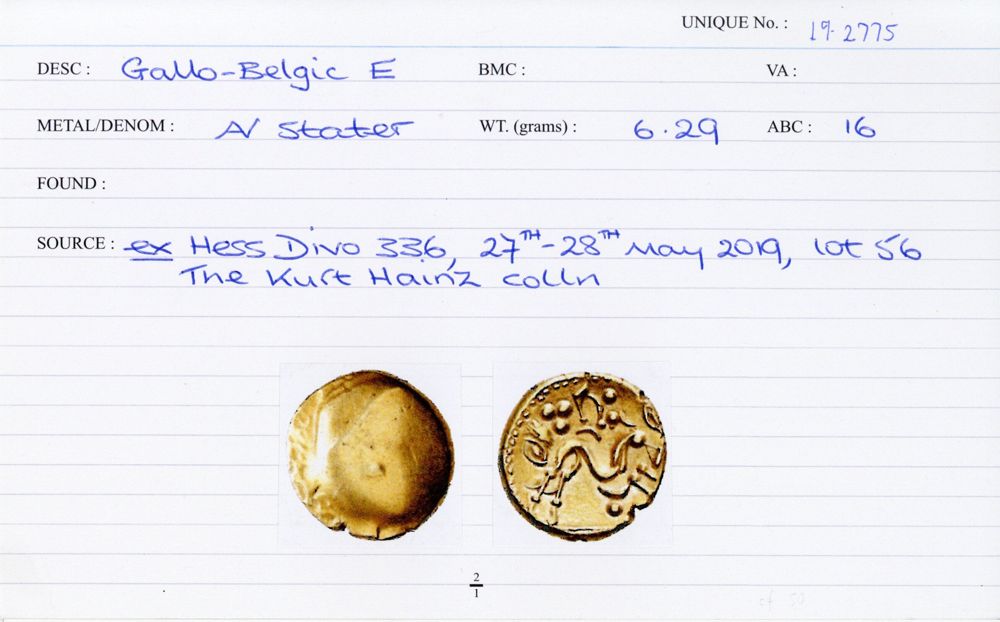 UNIQUE No. : 19.2775
DESC : Gallo-Belgic E BMC : VA :
METAL/DENOM : AV Stater WT. (grams) : 6.29 ABC : 16
FOUND :
SOURCE : ex Hess Divo 336, 27TH-28TH May 2019, lot 56
The Kurt Hainz colln
2
1